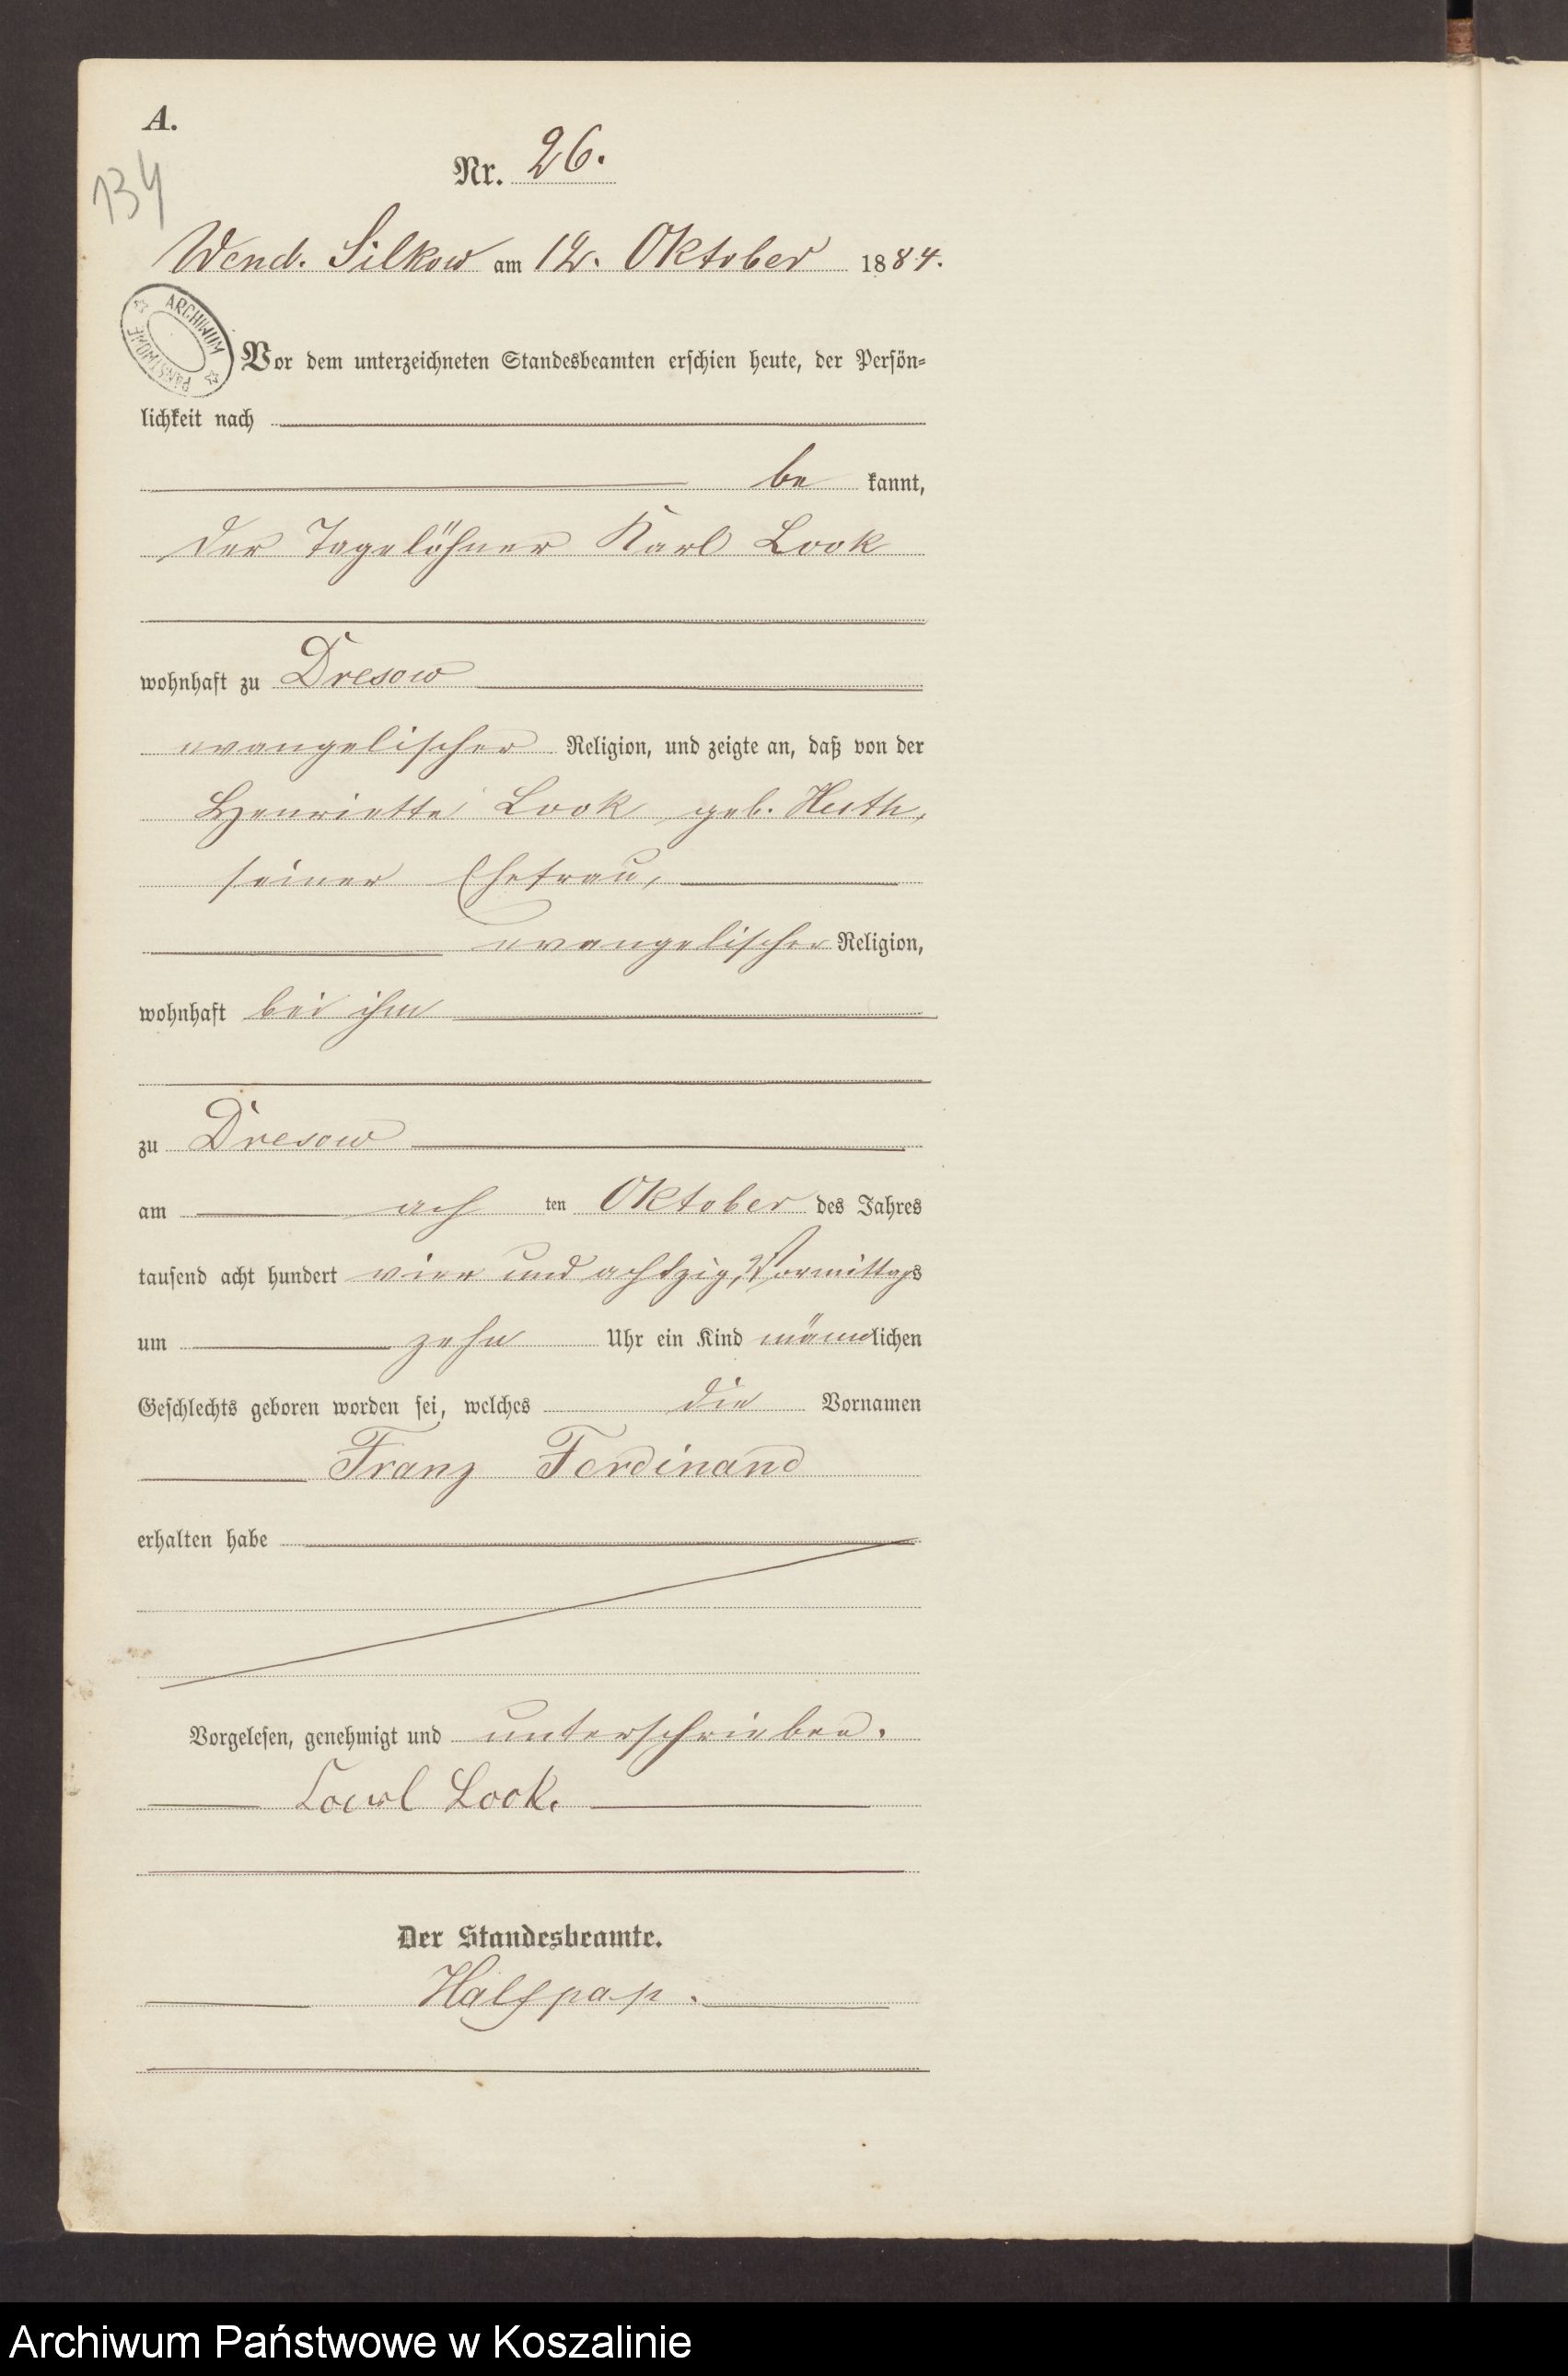 A.
134
Nr. 26.
Wend. Silkow am 12. Oktober 1884.
ARCHIWUM PAŃSTWOWE
Vor dem unterzeichneten Standesbeamten erschien heute, der Persön-
lichkeit nach
be kannt,
der Tagelöhner Karl Look
wohnhaft zu Dresow
evangelischer Religion, und zeigte an, daß von der
Henriette Look geb. Huth,
seiner Ehefrau,
evangelischer Religion,
wohnhaft bei ihm
zu Dresow
am ach ten Oktober des Jahres
tausend acht hundert vier und achtzig, Vormittags
um zehn Uhr ein Kind männlichen
Geschlechts geboren worden sei, welches die Vornamen
Franz Ferdinand
erhalten habe
Vorgelesen, genehmigt und unterschrieben.
Karl Look.
Der Standesbeamte.
Halfpap.
Archiwum Państwowe w Koszalinie